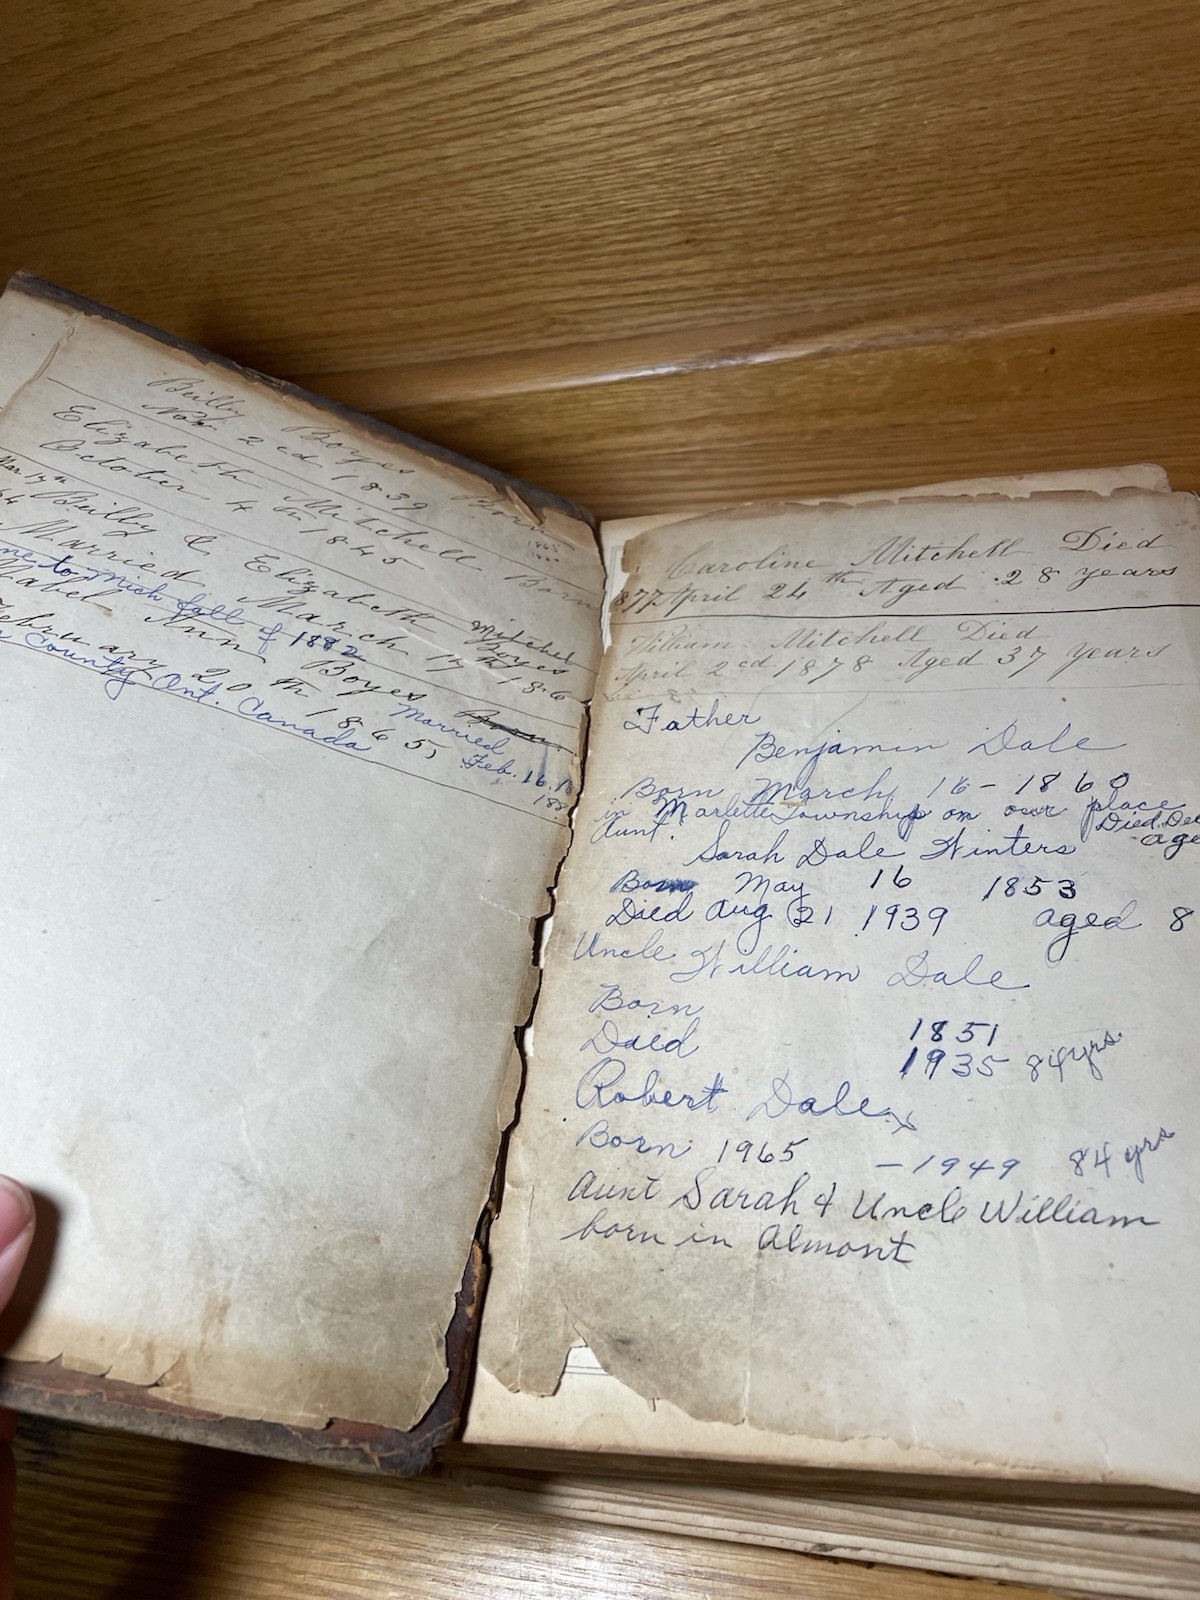 Builby Boyes Born
Nov. 2cd 1839
Elizabeth Mitchell Born
October 4th 1845
Mar 17th
Builby & Elizabeth Mitchel
Boyes
Married March 17th 186
to Mich fall of 1882
Mabel Ann Boyes Born
February 20th 1865,
Married
Feb. 16. 18
188
County Ont. Canada
Caroline Mitchell Died
877 April 24th Aged 28 years
William Mitchell Died
April 2cd 1878 Aged 37 years
Father
Benjamin Dale
Born March 16 - 1860
in Marlette Township on our place
Died Dec
age
Aunt
Sarah Dale Winters
Born May 16 1853
Died Aug 21 1939 aged 8
Uncle William Dale
Born 1851
Daed 1935 84 yrs.
Robert Dale x
Born 1965 - 1949 84 yrs
Aunt Sarah & Uncle William
born in Almont